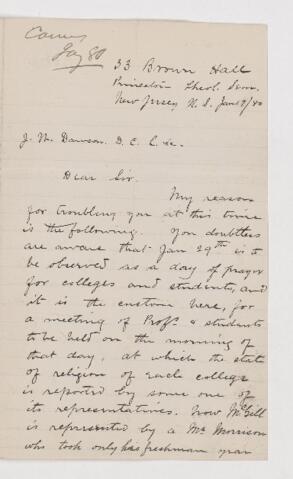 Jany 80
33 Brown Hall
Princeton Theol. Sem.
New Jersey, U.S. Jan 9/80
J. W. Dawson. &c.
Dear Sir.
My reason
for troubling you at this time
is the following. You doubtless
are aware that Jan 29th is to
be observed as a day of prayer
for colleges and students, and
it is the custom here, for
a meeting of Profs. & students
to be held on the morning of
that day, at which the state
of religion of each college
is reported by some one of
its representatives. Now McGill
is represented by a Mr Morrison
who took only his freshman year